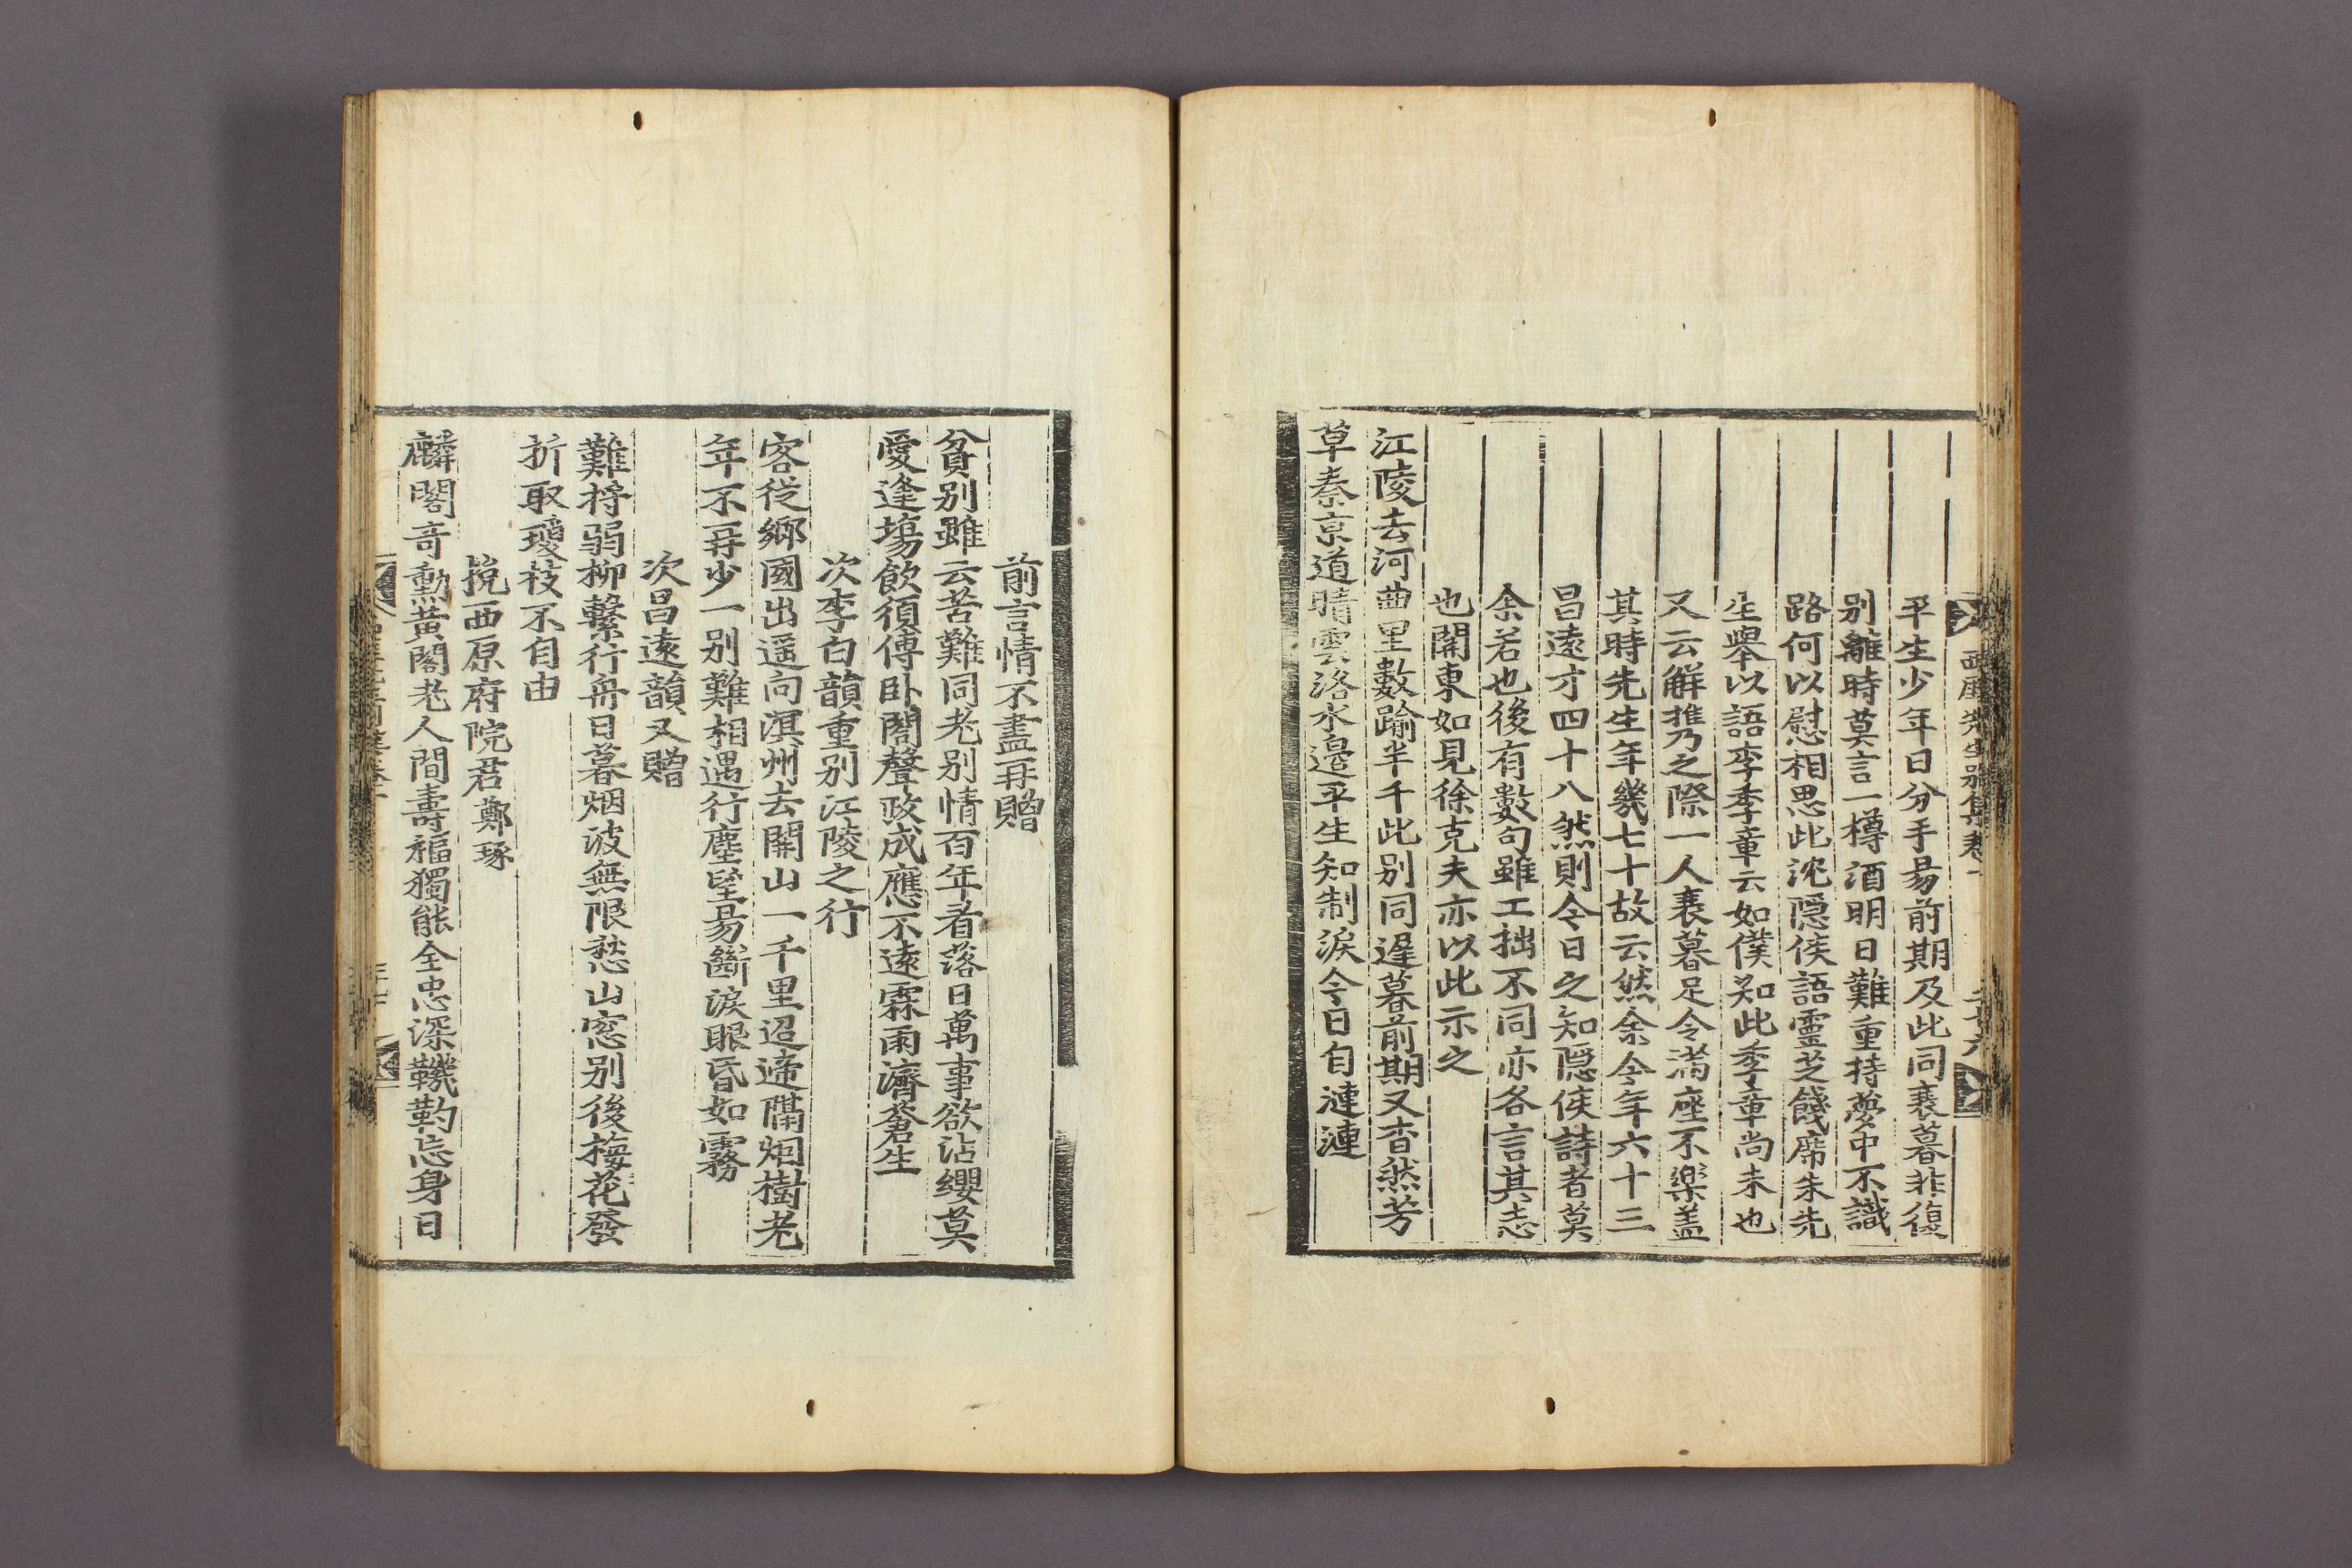 西厓先生別集卷一
平生少年日分手易前期及此同衰暮非復
別離時莫言一樽酒明日難重持夢中不識
路何以慰相思此沈隱侯語靈芝餞席朱先
生擧以語李季章云如僕知此季章尚未也
又云解携之際一人衰暮足令滿座不樂盖
其時先生年幾七十故云然余今年六十三
昌遠才四十八然則今日之知隱侯詩者莫
余若也後有數句雖工拙不同亦各言其志
也關東如見徐克夫亦以此示之
江陵去河曲里數踰半千此別同遅暮前期又杳然芳
草秦京道晴雲洛水邉平生知制淚今日自漣漣
前言情不盡再贈
貧別雖云苦難同老別情百年看落日萬事欲沾纓莫
愛逢塲飮須傳卧閤聲政成應不遠霖雨濟蒼生
次李白韻重別江陵之行
客從鄉國出遥向溟州去關山一千里迢遞隔烟樹老
年不再少一別難相遇行塵望易斷淚眼昏如霧
次昌遠韻又贈
難將弱柳繫行舟日暮烟波無限愁山窓別後梅花發
折取瓊枝不自由
挽西原府院君鄭琢
麟閣奇勳黃閣老人間壽福獨能全忠深鞿靮忘身日